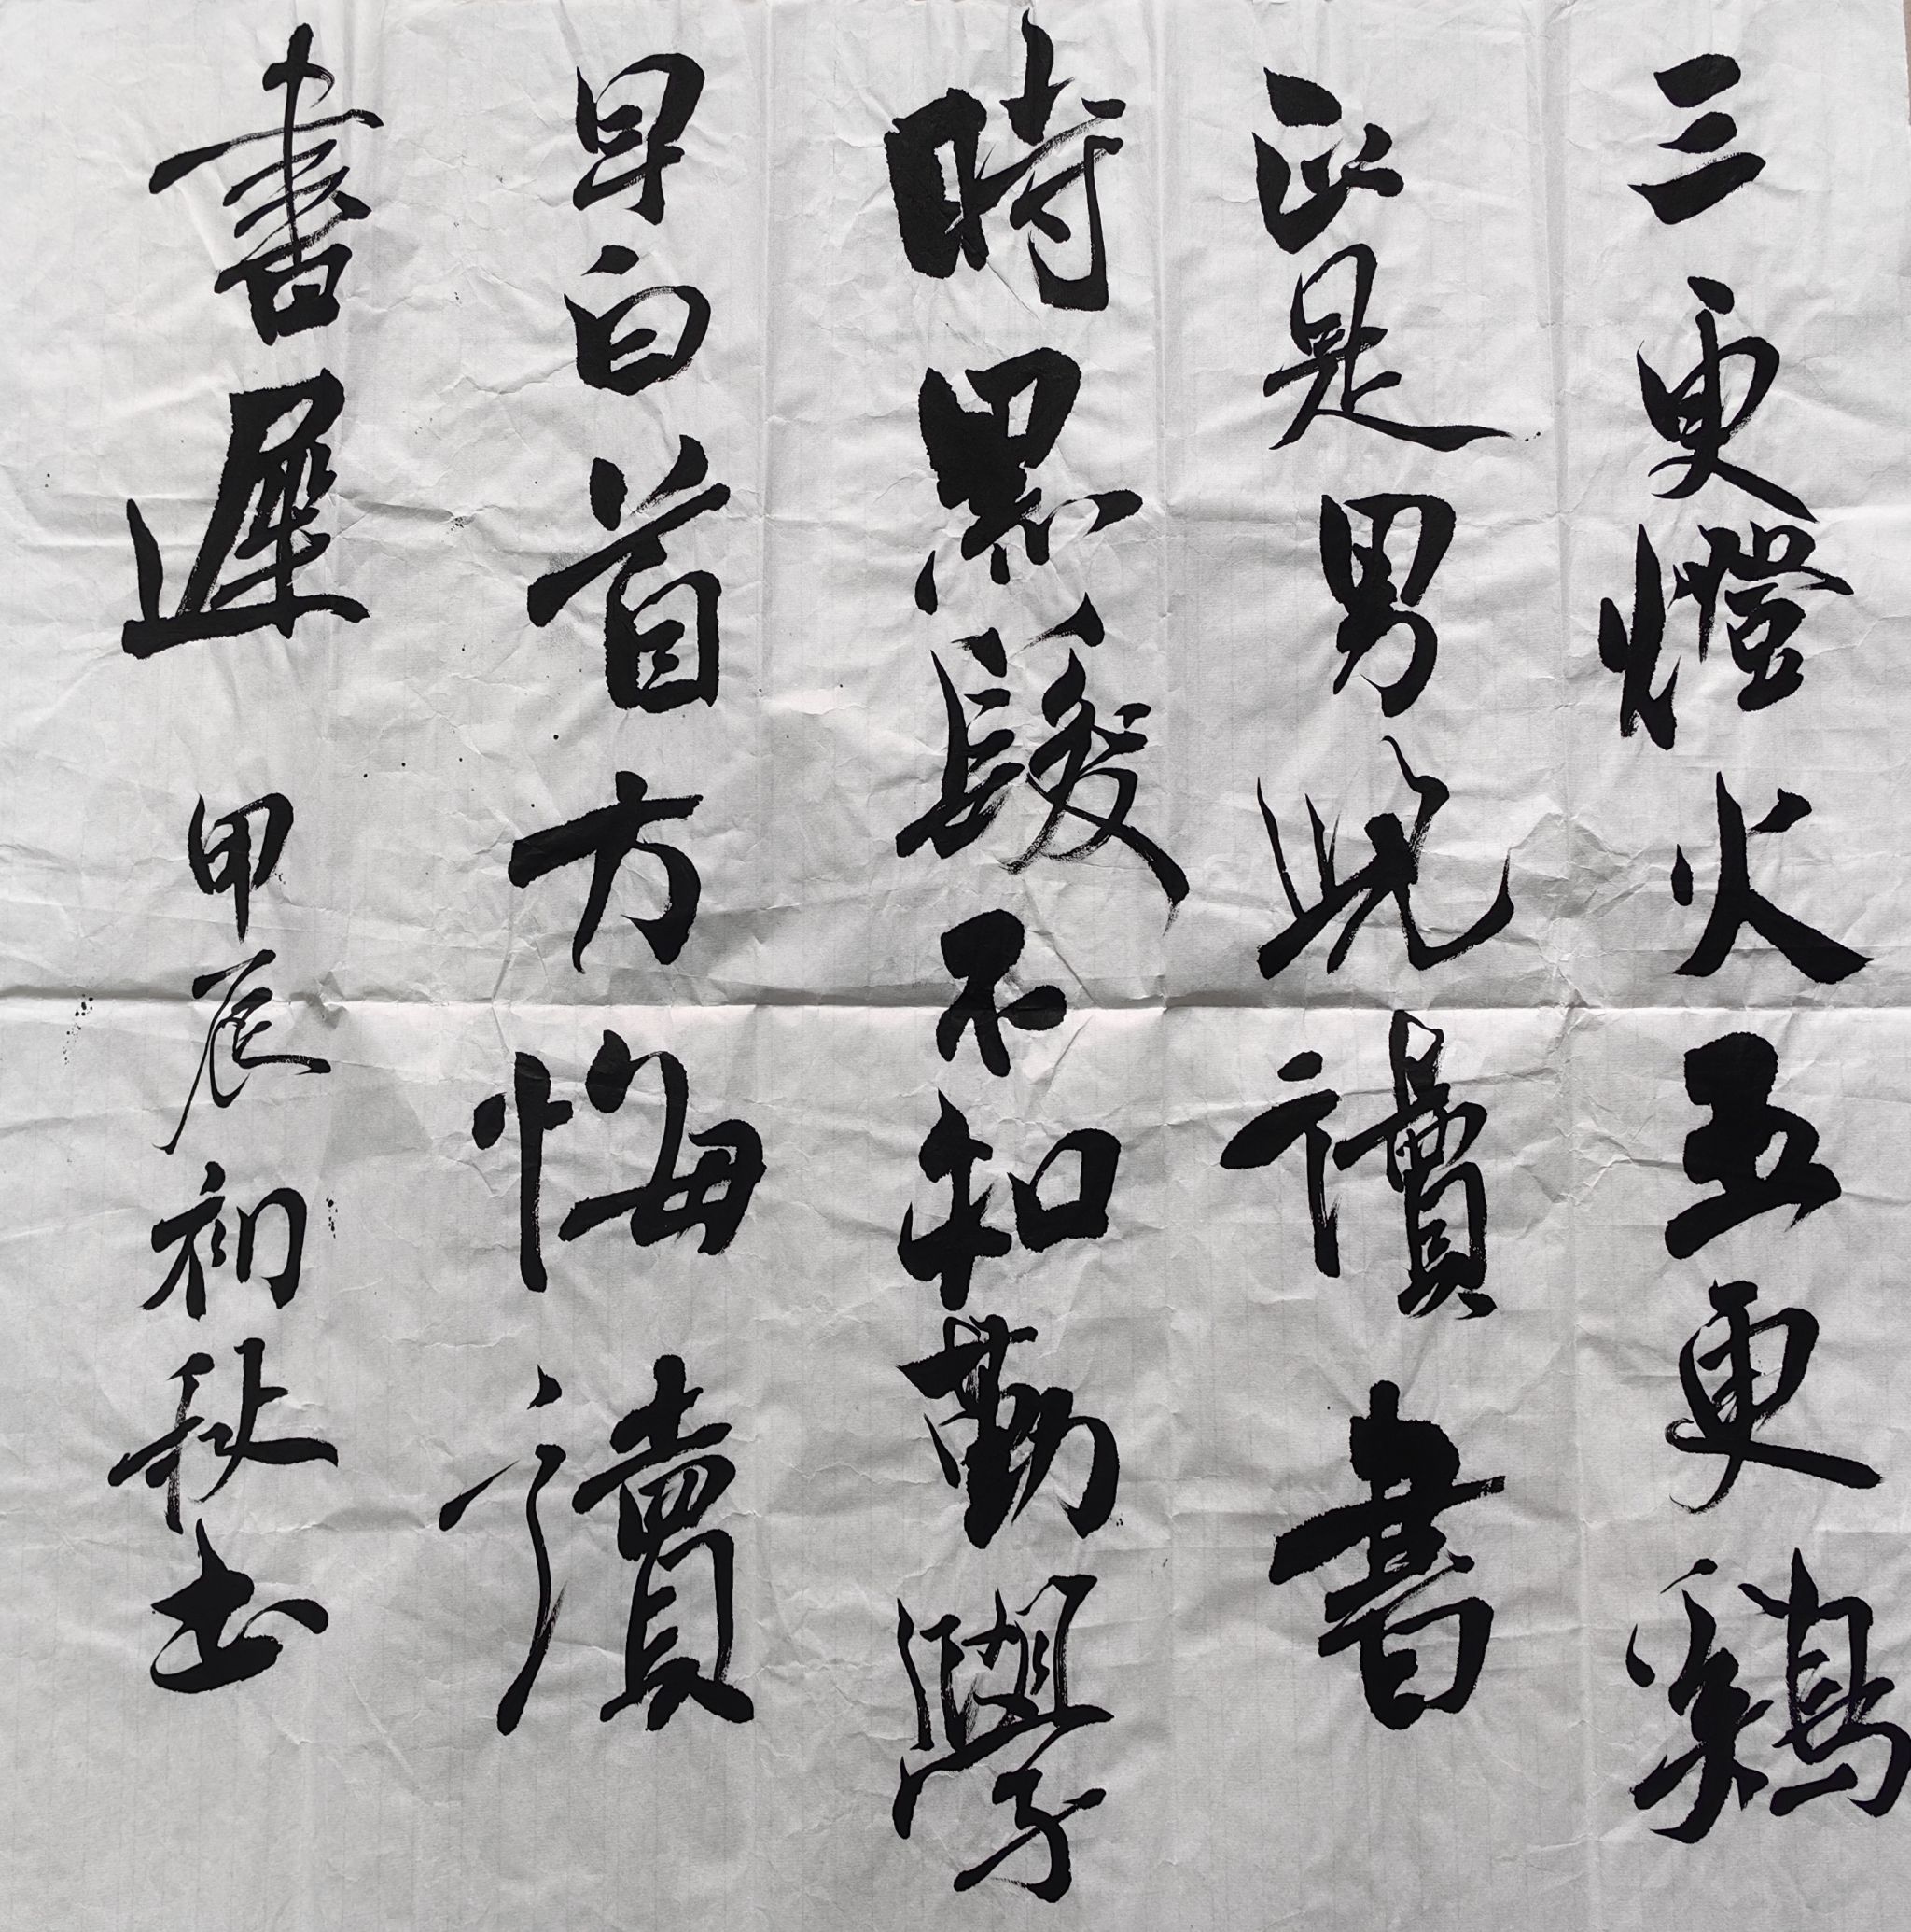 三更燈火五更鷄
正是男兒讀書
時黑髮不知勤學
早白首方悔讀
書遲 甲辰初秋书